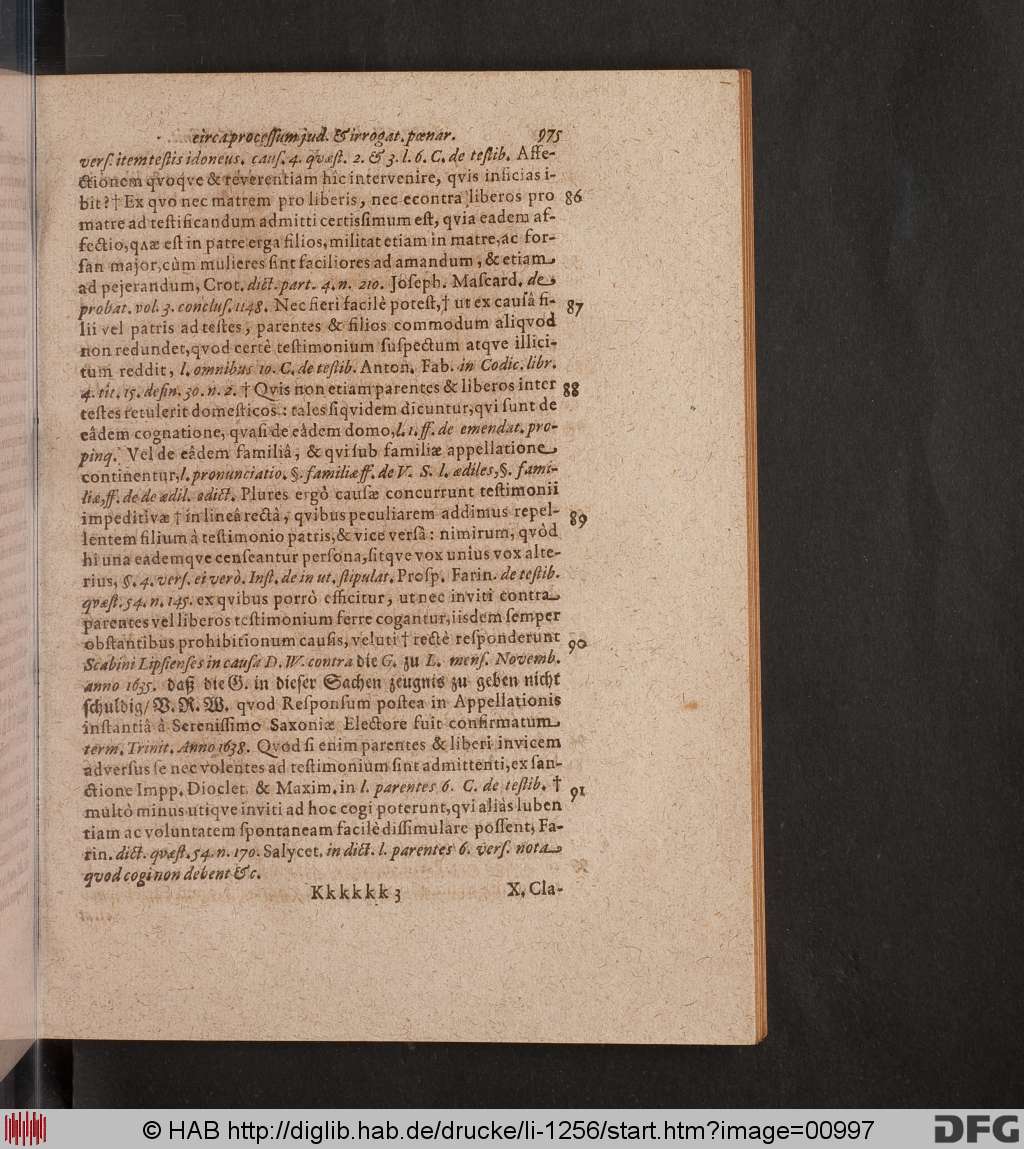 circa processum jud. & irrogat. pœnar. 975
vers. item testis idoneus. caus. 4. qvæst. 2. & 3. l. 6. C. de testib. Affe-
ctionem qvoqve & reverentiam hîc intervenire, qvis inficias i-
bit? † Ex qvo nec matrem pro liberis, nec econtra liberos pro 86
matre ad testificandum admitti certissimum est, qvia eadem af-
fectio, qvæ est in patre erga filios, militat etiam in matre, ac for-
san major, cùm mulieres sint faciliores ad amandum, & etiam
ad pejerandum, Crot. dict. part. 4. n. 210. Joseph. Mascard. de
probat. vol. 3. conclus. 1148. Nec fieri facilè potest, † ut ex causâ fi- 87
lii vel patris ad testes, parentes & filios commodum aliqvod
non redundet, qvod certè testimonium suspectum atqve illici-
tum reddit, l. omnibus 10. C. de testib. Anton. Fab. in Codic. libr.
4. tit. 15. defin. 30. n. 2. † Qvis non etiam parentes & liberos inter 88
testes retulerit domesticos: tales siqvidem dicuntur, qvi sunt de
eâdem cognatione, qvasi de eâdem domo, l. 1. ff. de emendat. pro-
pinq. Vel de eâdem familiâ, & qvi sub familiæ appellatione
continentur, l. pronunciatio. §. familiæ ff. de V. S. l. ædiles, §. fami-
liæ, ff. de de ædil. edict. Plures ergò causæ concurrunt testimonii
impeditivæ † in lineâ rectâ, qvibus peculiarem addimus repel- 89
lentem filium à testimonio patris, & vice versâ: nimirum, qvòd
hi una eademqve censeantur persona, sitqve vox unius vox alte-
rius, §. 4. vers. ei verò. Inst. de in ut. stipulat. Prosp. Farin. de testib.
qvæst. 54. n. 145. ex qvibus porrò efficitur, ut nec inviti contra
parentes vel liberos testimonium ferre cogantur, iisdem semper
obstantibus prohibitionum causis, veluti † rectè responderunt 90
Scabini Lipsienses in causa D. W. contra die G. zu L. mens. Novemb.
anno 1635. daß die G. in dieser Sachen zeugnis zu geben nicht
schuldig/ V. R. W. qvod Responsum postea in Appellationis
instantiâ à Serenissimo Saxoniæ Electore fuit confirmatum
term. Trinit. Anno 1638. Qvod si enim parentes & liberi invicem
adversus se nec volentes ad testimonium sint admittenti, ex san-
ctione Impp. Dioclet. & Maxim. in l. parentes 6. C. de testib. † 91
multò minus utiqve inviti ad hoc cogi poterunt, qvi aliàs luben
tiam ac voluntatem spontaneam facilè dissimulare possent, Fa-
rin. dict. qvæst. 54. n. 170. Salycet. in dict. l. parentes 6. vers. nota
quod cogi non debent &c.
Kkkkkk 3 X. Cla-
© HAB http://diglib.hab.de/drucke/li-1256/start.htm?image=00997
DFG